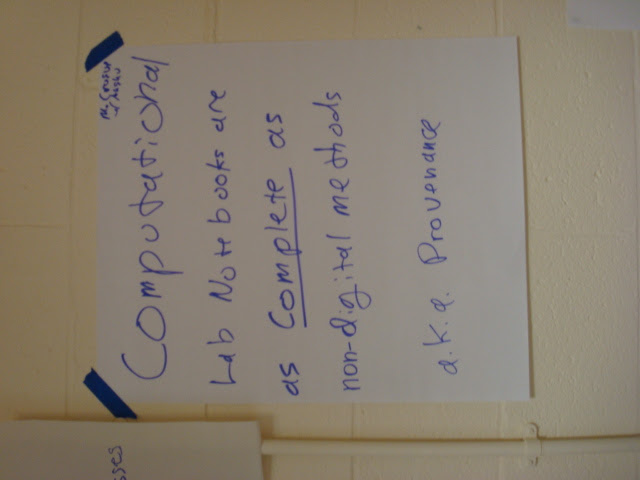 sses
Computational
Lab Notebooks are
as Complete as
non-digital methods
a.k.a. Provenance